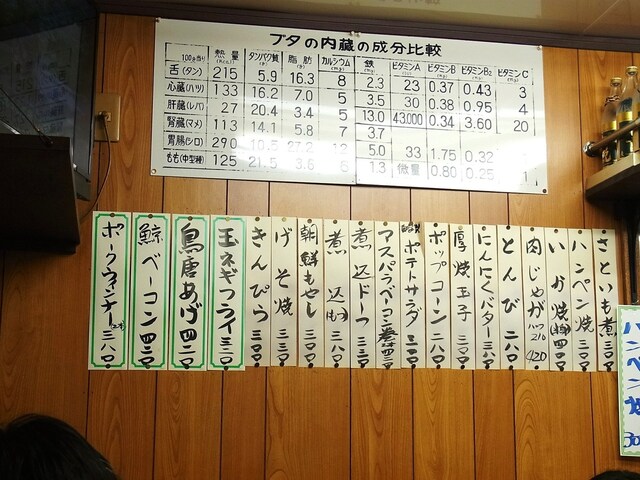 ブタの内蔵の成分比較
100g当り 熱量 タンパク質 脂肪 カルシウム 鉄 ビタミンA ビタミンB ビタミンB2 ビタミンC
舌(タン) 215 5.9 16.3 8 2.3 23 0.37 0.43 3
心臓(ハツ) 133 16.2 7.0 5 3.5 30 0.38 0.95 4
肝臓(レバ) 20.4 3.4 5 13.0 43,000 0.34 3.60 20
腎臓(マメ) 113 14.1 5.8 7 3.7
胃腸(シロ) 290 10.5 27.2 5.0 33 1.75 0.32
もも(中型種) 125 21.5 3.6 1.3 微量 0.80 0.25
さといも煮 三三〇
ハンペン焼 三〇〇
いか焼 四三〇
肉じゃが ハーフ210 420
とんび 二八〇
にんにくバター 三八〇
厚焼玉子 三三〇
ポップコーン 二八〇
ポテトサラダ 三二〇
アスパラベーコン巻
煮込ドーフ 三三〇
煮込
朝鮮もやし 三三〇
げそ焼 三三〇
きんぴら 三〇〇
玉ネギフライ 三三〇
鳥唐あげ 四二〇
鯨ベーコン 四三〇
ポークウィンナー 三八〇
ハンペン